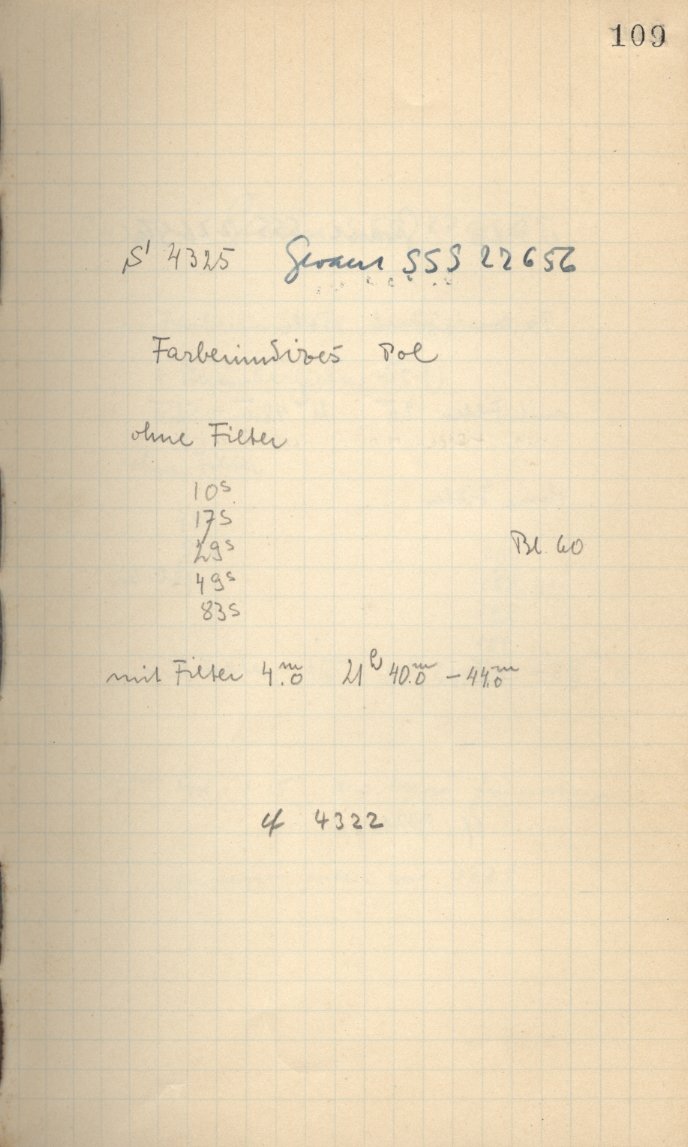 109
S 4325 Gevaert SSS 22656
Farbenindizes Pol
ohne Filter
10s
17s
29s
49s
83s
Bl. 60
mit Filter 4.m0 21h 40.m0 – 44.m0
cf 4322